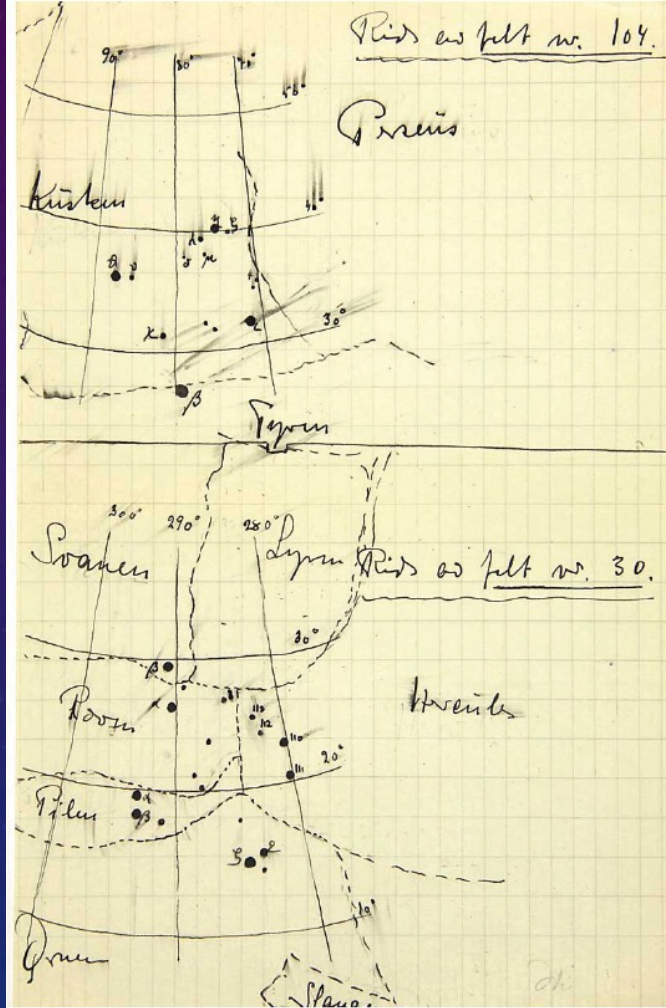 Rids av felt nr. 104.
90° 80° 70°
Perseus
Kusken
θ
30°
β
Tyren
300° 290° 280°
Svanen
Lyren
Rids av felt nr. 30.
30°
β
Ræven
Hercules
113
112
110
20°
111
Pilen
α
β
ζ ε
10°
Ørnen
Slange